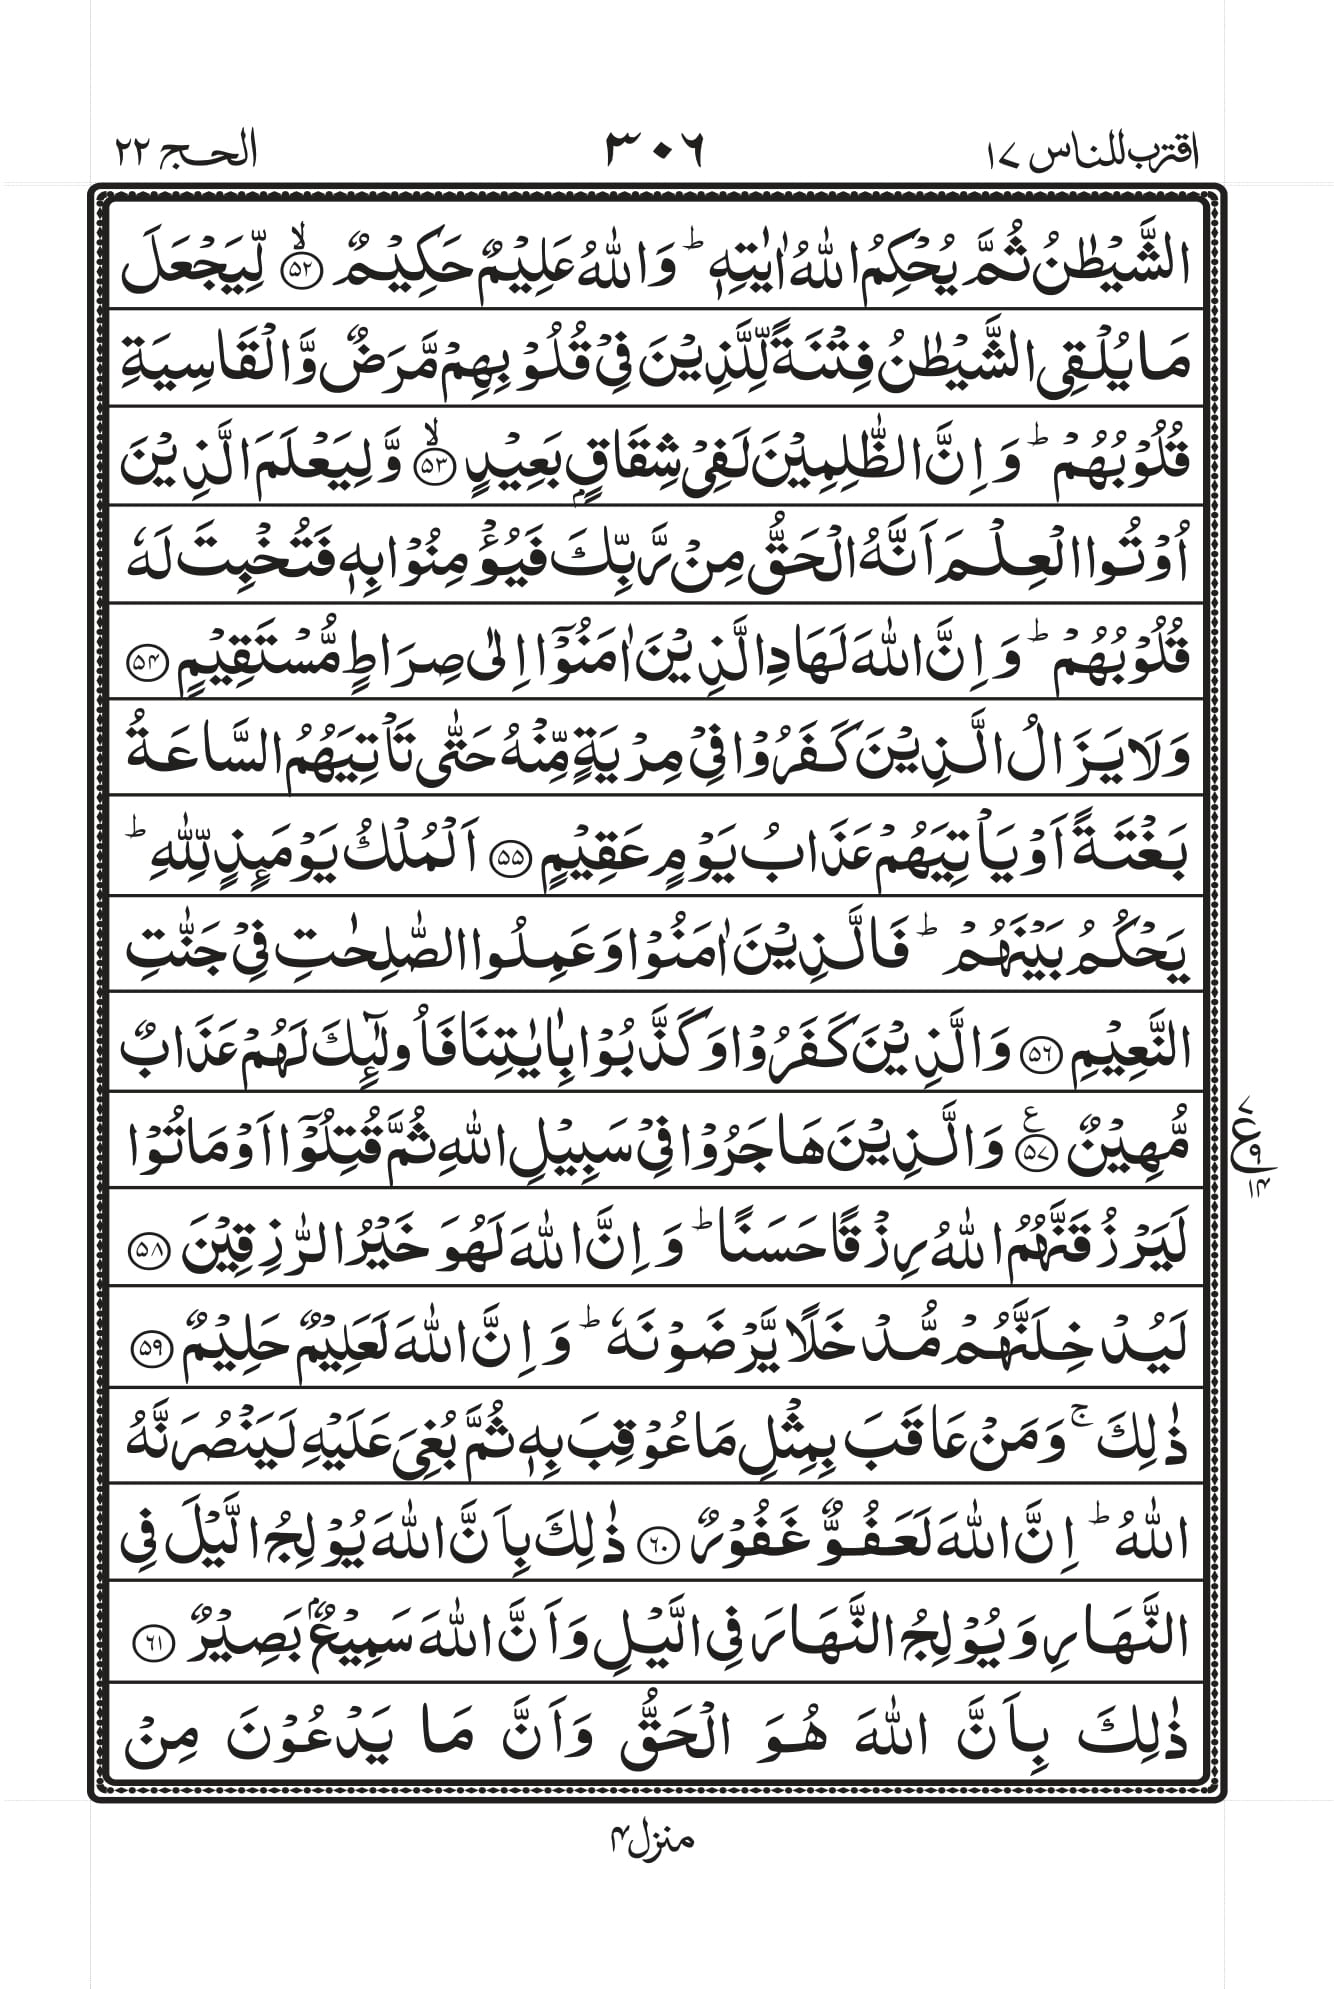 اقترب للناس ١٧
٣٠٦
الحج ٢٢
الشَّيۡطٰنُ ثُمَّ يُحۡكِمُ اللّٰهُ اٰيٰتِهٖ ؕ وَاللّٰهُ عَلِيۡمٌ حَكِيۡمٌ ۙ‏ ﴿۵۲﴾ لِّيَجۡعَلَ
مَا يُلۡقِى الشَّيۡطٰنُ فِتۡنَةً لِّلَّذِيۡنَ فِىۡ قُلُوۡبِهِمۡ مَّرَضٌ وَّالۡقَاسِيَةِ
قُلُوۡبُهُمۡ ؕ وَاِنَّ الظّٰلِمِيۡنَ لَفِىۡ شِقَاقٍۢ بَعِيۡدٍ ۙ‏ ﴿۵۳﴾ وَّلِيَعۡلَمَ الَّذِيۡنَ
اُوۡتُوا الۡعِلۡمَ اَنَّهُ الۡحَقُّ مِنۡ رَّبِّكَ فَيُؤۡمِنُوۡا بِهٖ فَتُخۡبِتَ لَهٗ
قُلُوۡبُهُمۡ ؕ وَاِنَّ اللّٰهَ لَهَادِ الَّذِيۡنَ اٰمَنُوۡۤا اِلٰى صِرَاطٍ مُّسۡتَقِيۡمٍ ﴿۵۴﴾
وَلَا يَزَالُ الَّذِيۡنَ كَفَرُوۡا فِىۡ مِرۡيَةٍ مِّنۡهُ حَتّٰى تَاۡتِيَهُمُ السَّاعَةُ
بَغۡتَةً اَوۡ يَاۡتِيَهُمۡ عَذَابُ يَوۡمٍ عَقِيۡمٍ ﴿۵۵﴾ اَلۡمُلۡكُ يَوۡمَٮِٕذٍ لِّلّٰهِ ؕ
يَحۡكُمُ بَيۡنَهُمۡ ؕ فَالَّذِيۡنَ اٰمَنُوۡا وَعَمِلُوا الصّٰلِحٰتِ فِىۡ جَنّٰتِ
النَّعِيۡمِ ﴿۵۶﴾ وَالَّذِيۡنَ كَفَرُوۡا وَكَذَّبُوۡا بِاٰيٰتِنَا فَاُولٰٓٮِٕكَ لَهُمۡ عَذَابٌ
مُّهِيۡنٌ ﴿۵۷﴾ ع وَالَّذِيۡنَ هَاجَرُوۡا فِىۡ سَبِيۡلِ اللّٰهِ ثُمَّ قُتِلُوۡۤا اَوۡ مَاتُوۡا
٧ ع ٩ ١۴
لَيَرۡزُقَنَّهُمُ اللّٰهُ رِزۡقًا حَسَنًا ؕ وَاِنَّ اللّٰهَ لَهُوَ خَيۡرُ الرّٰزِقِيۡنَ ﴿۵۸﴾
لَيُدۡخِلَنَّهُمۡ مُّدۡخَلًا يَّرۡضَوۡنَهٗ ؕ وَاِنَّ اللّٰهَ لَعَلِيۡمٌ حَلِيۡمٌ ﴿۵۹﴾
ذٰلِكَ ۚ وَمَنۡ عَاقَبَ بِمِثۡلِ مَا عُوۡقِبَ بِهٖ ثُمَّ بُغِىَ عَلَيۡهِ لَيَنۡصُرَنَّهُ
اللّٰهُ ؕ اِنَّ اللّٰهَ لَعَفُوٌّ غَفُوۡرٌ ﴿۶۰﴾ ذٰلِكَ بِاَنَّ اللّٰهَ يُوۡلِجُ الَّيۡلَ فِى
النَّهَارِ وَيُوۡلِجُ النَّهَارَ فِى الَّيۡلِ وَاَنَّ اللّٰهَ سَمِيۡعٌۢ بَصِيۡرٌ ﴿۶۱﴾
ذٰلِكَ بِاَنَّ اللّٰهَ هُوَ الۡحَقُّ وَاَنَّ مَا يَدۡعُوۡنَ مِنۡ
منزل ۴